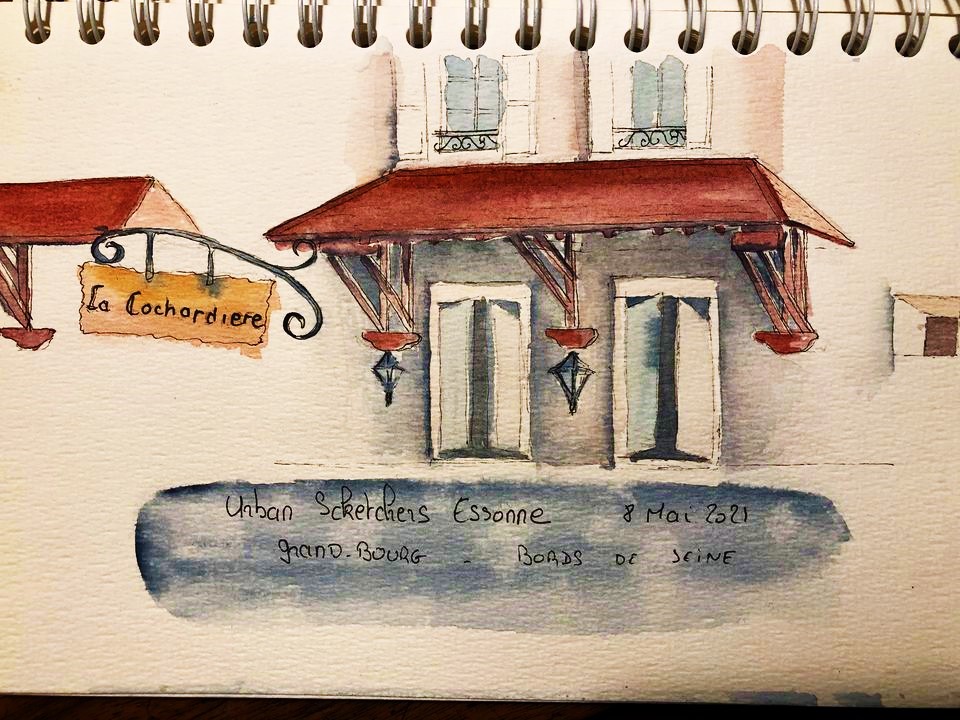 La Cochardiere
Urban Scketchers Essonne 8 Mai 2021
Grand-BOURG - BORDS DE SEINE